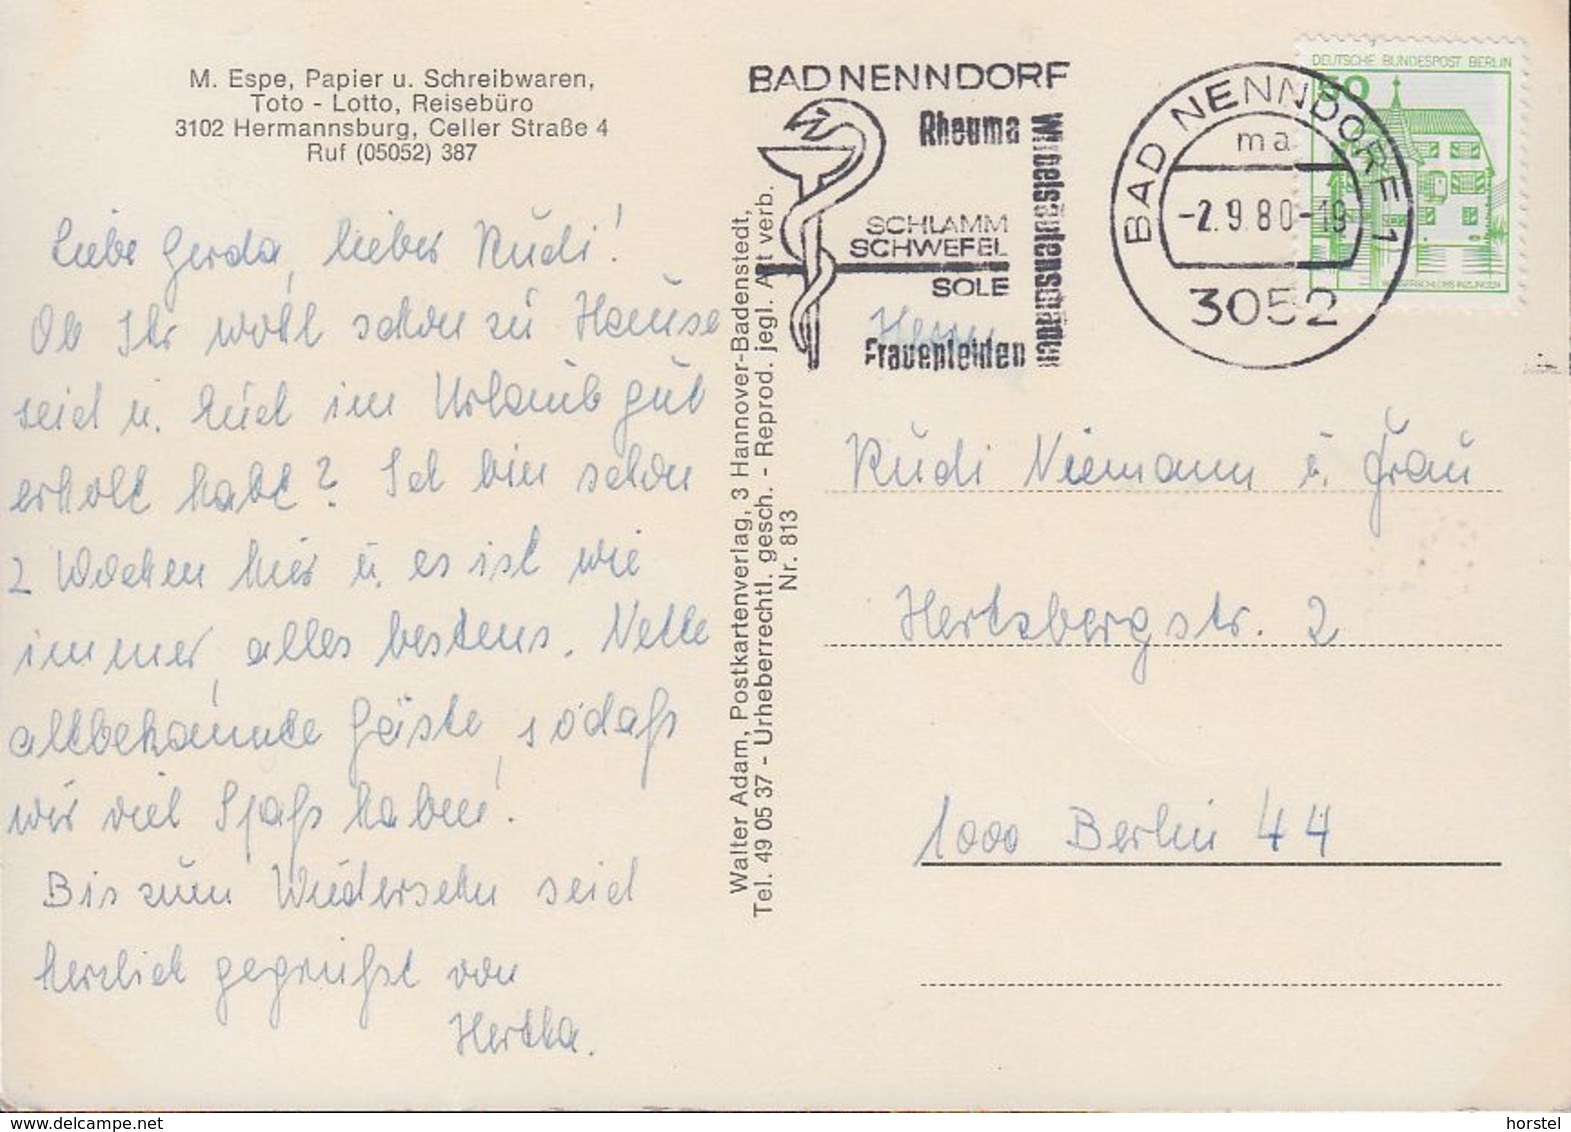 M. Espe, Papier u. Schreibwaren,
Toto - Lotto, Reisebüro
3102 Hermannsburg, Celler Straße 4
Ruf (05052) 387
Liebe Gerda, lieber Rudi!
Ob Ihr wohl schon zu Hause
seid u. Euch im Urlaub gut
erholt habt? Ich bin schon
2 Wochen hier u. es ist wie
immer, alles bestens. Nette
altbekannte Gäste, sodaß
wir viel Spaß haben!
Bis zum Wiedersehn seid
herzlich gegrüßt von
Hertha.
Walter Adam, Postkartenverlag, 3 Hannover-Badenstedt,
Tel. 49 05 37 - Urheberrechtl. gesch. - Reprod. jegl. Art verb.
Nr. 813
BAD NENNDORF
Rheuma
Wirbelsäulenschäden
SCHLAMM
SCHWEFEL
SOLE
Frauenleiden
BAD NENNDORF 1
ma
-2.9.80-19
3052
DEUTSCHE BUNDESPOST BERLIN
50
WASSERSCHLOSS INZLINGEN
Herrn
Rudi Niemann u. Frau
Hertzbergstr. 2
1000 Berlin 44
horstel